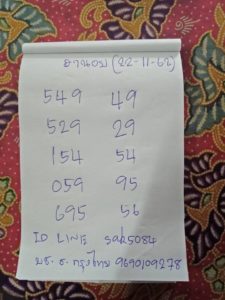 ฮานอย (22-11-62)
549 49
529 29
154 54
059 95
695 56
ID LINE sak5084
บช. ธ. กรุงไทย 9690109278